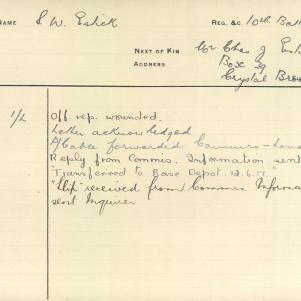 NAME S W. Estick REG. &C. 10th Batt
NEXT OF KIN Mr Chas J Est
ADDRESS Box 39
Crystal Bro
1/L Off. rep. wounded.
Letter acknowledged
Cable forwarded Commrs -
Reply from Commrs. Information sent
"Transferred to Base Depot. 12.6.17."
"Slip" received from Commrs Informa
sent Inquirer